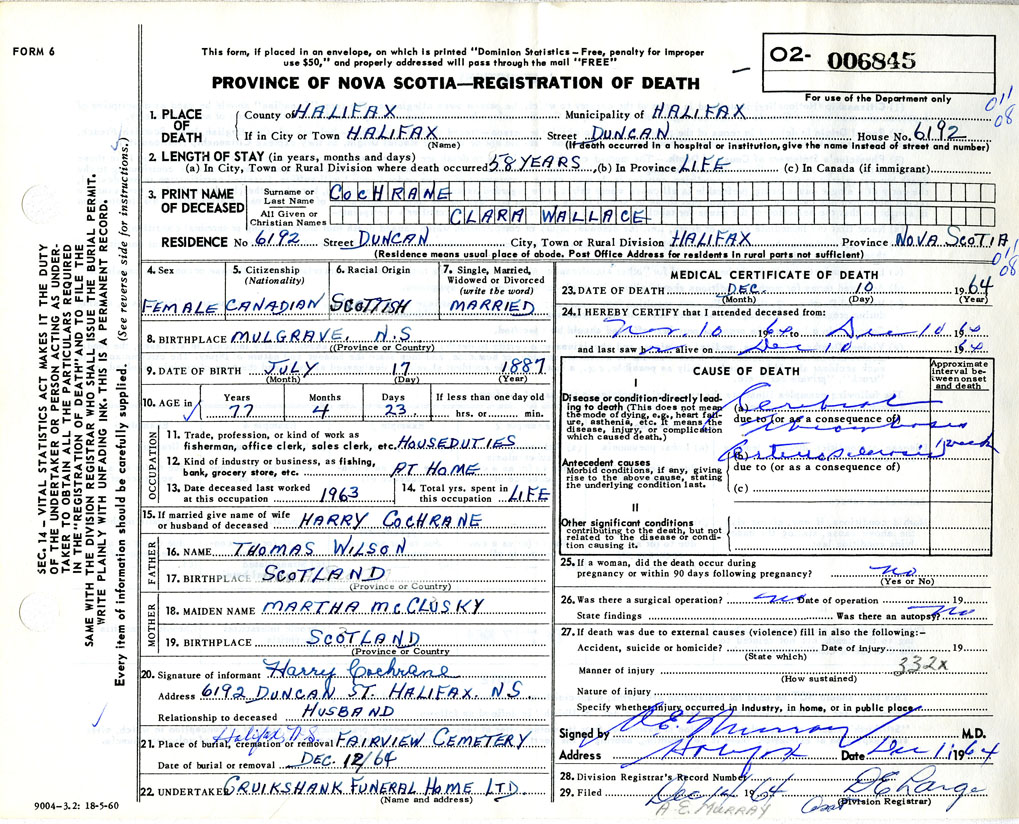 FORM 6
This form, if placed in an envelope, on which is printed "Dominion Statistics – Free, penalty for improper
use $50," and properly addressed will pass through the mail "FREE"
PROVINCE OF NOVA SCOTIA—REGISTRATION OF DEATH
O2- 006845
For use of the Department only
011
08
1. PLACE OF DEATH
County of HALIFAX Municipality of HALIFAX
If in City or Town HALIFAX Street DUNCAN House No. 6192
(Name) (If death occurred in a hospital or institution, give the name instead of street and number)
2. LENGTH OF STAY (in years, months and days)
(a) In City, Town or Rural Division where death occurred 58 YEARS (b) In Province LIFE (c) In Canada (if immigrant)
3. PRINT NAME OF DECEASED
Surname or Last Name COCHRANE
All Given or Christian Names CLARA WALLACE
RESIDENCE No. 6192 Street DUNCAN City, Town or Rural Division HALIFAX Province NOVA SCOTIA
(Residence means usual place of abode. Post Office Address for residents in rural parts not sufficient)
011
08
4. Sex
FEMALE
5. Citizenship
(Nationality)
CANADIAN
6. Racial Origin
SCOTTISH
7. Single, Married,
Widowed or Divorced
(write the word)
MARRIED
8. BIRTHPLACE MULGRAVE, N.S
(Province or Country)
9. DATE OF BIRTH JULY 17 1887
(Month) (Day) (Year)
10. AGE in
Years 77
Months 4
Days 23
If less than one day old
hrs. or min.
OCCUPATION
11. Trade, profession, or kind of work as
fisherman, office clerk, sales clerk, etc. HOUSEDUTIES
12. Kind of industry or business, as fishing,
bank, grocery store, etc. AT HOME
13. Date deceased last worked
at this occupation 1963
14. Total yrs. spent in
this occupation LIFE
15. If married give name of wife
or husband of deceased HARRY COCHRANE
FATHER
16. NAME THOMAS WILSON
17. BIRTHPLACE SCOTLAND
(Province or Country)
MOTHER
18. MAIDEN NAME MARTHA McCLUSKY
19. BIRTHPLACE SCOTLAND
(Province or Country)
20. Signature of informant Harry Cochrane
Address 6192 DUNCAN ST. HALIFAX. N.S.
Relationship to deceased HUSBAND
Halifax N.S.
21. Place of burial, cremation or removal FAIRVIEW CEMETERY
Date of burial or removal DEC. 12/64
22. UNDERTAKER CRUIKSHANK FUNERAL HOME LTD.
(Name and address)
9004–3.2: 18-5-60
MEDICAL CERTIFICATE OF DEATH
23. DATE OF DEATH DEC. 10 1964
(Month) (Day) (Year)
24. I HEREBY CERTIFY that I attended deceased from:
Nov. 10 1964 to Dec 10 1964
and last saw alive on Dec 10 1964
CAUSE OF DEATH
Approximate
interval be-
tween onset
and death
I
Disease or condition directly lead-
ing to death (This does not mean
the mode of dying, e.g., heart fail-
ure, asthenia, etc. It means the
disease, injury, or complication
which caused death.)
(a) Cerebral
due to (or as a consequence of)
Thrombosis
(b) Arteriosclerosis 1 week
Antecedent causes
Morbid conditions, if any, giving
rise to the above cause, stating
the underlying condition last.
due to (or as a consequence of)
(c)
II
Other significant conditions
contributing to the death, but not
related to the disease or condi-
tion causing it.
25. If a woman, did the death occur during
pregnancy or within 90 days following pregnancy? no
(Yes or No)
26. Was there a surgical operation? no Date of operation 19
State findings Was there an autopsy? No
27. If death was due to external causes (violence) fill in also the following:–
Accident, suicide or homicide? Date of injury 19
(State which)
332X
Manner of injury
(How sustained)
Nature of injury
Specify whether injury occurred in industry, in home, or in public place
Signed by A.E. Murray M.D.
Address Halifax Date Dec 11 1964
28. Division Registrar's Record Number
29. Filed Dec 14 1964 D E Large
A-E. MURRAY (Division Registrar)
SEC. 14 – VITAL STATISTICS ACT MAKES IT THE DUTY
OF THE UNDERTAKER OR PERSON ACTING AS UNDER-
TAKER TO OBTAIN ALL THE PARTICULARS REQUIRED
IN THE "REGISTRATION OF DEATH" AND TO FILE THE
SAME WITH THE DIVISION REGISTRAR WHO SHALL ISSUE THE BURIAL PERMIT.
WRITE PLAINLY WITH UNFADING INK. THIS IS A PERMANENT RECORD.
Every item of information should be carefully supplied. (See reverse side for instructions.)